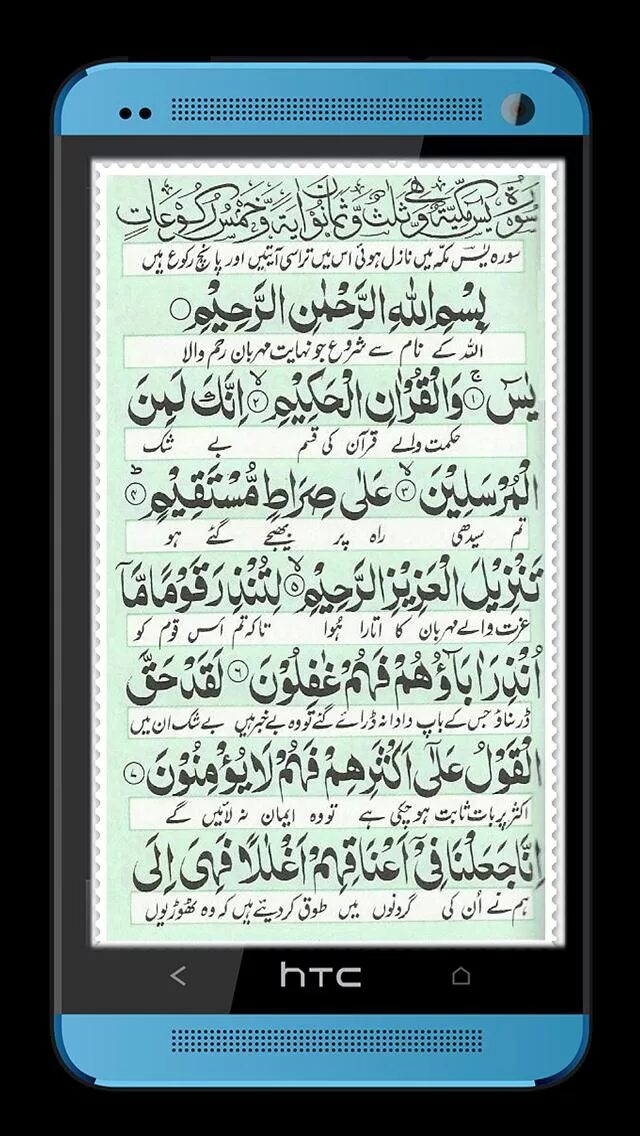 سُوْرَةُ يٰسٓ مَكِّيَّةٌ وَّهِيَ ثَلٰثٌ وَّثَمَانُوْنَ اٰيَةً وَّخَمْسُ رُكُوْعَاتٍ
سورہ یٰسٓ مکہ میں نازل ہوئی اس میں تراسی آیتیں اور پانچ رکوع ہیں
بِسْمِ اللّٰهِ الرَّحْمٰنِ الرَّحِيْمِ ○
اللہ کے نام سے شروع جو نہایت مہربان رحم والا
يٰسٓ ۚ﴿۱﴾ وَالْقُرْاٰنِ الْحَكِيْمِ ۙ﴿۲﴾ اِنَّكَ لَمِنَ
حکمت والے قرآن کی قسم بے شک
الْمُرْسَلِيْنَ ۙ﴿۳﴾ عَلٰى صِرَاطٍ مُّسْتَقِيْمٍ ؕ﴿۴﴾
تم سیدھی راہ پر بھیجے گئے ہو
تَنْزِيْلَ الْعَزِيْزِ الرَّحِيْمِ ۙ﴿۵﴾ لِتُنْذِرَ قَوْمًا مَّاۤ
عزت والے مہربان کا اتارا ہُوا تاکہ تم اس قوم کو
اُنْذِرَ اٰبَآؤُهُمْ فَهُمْ غٰفِلُوْنَ ﴿۶﴾ لَقَدْ حَقَّ
ڈر سناؤ جس کے باپ دادا نہ ڈرائے گئے تو وہ بے خبر ہیں بے شک ان میں
الْقَوْلُ عَلٰۤى اَكْثَرِهِمْ فَهُمْ لَا يُؤْمِنُوْنَ ﴿۷﴾
اکثر پر بات ثابت ہو چکی ہے تو وہ ایمان نہ لائیں گے
اِنَّا جَعَلْنَا فِيْۤ اَعْنَاقِهِمْ اَغْلٰلًا فَهِيَ اِلَى
ہم نے اُن کی گردنوں میں طوق کر دیئے ہیں کہ وہ ٹھوڑیوں
hTC